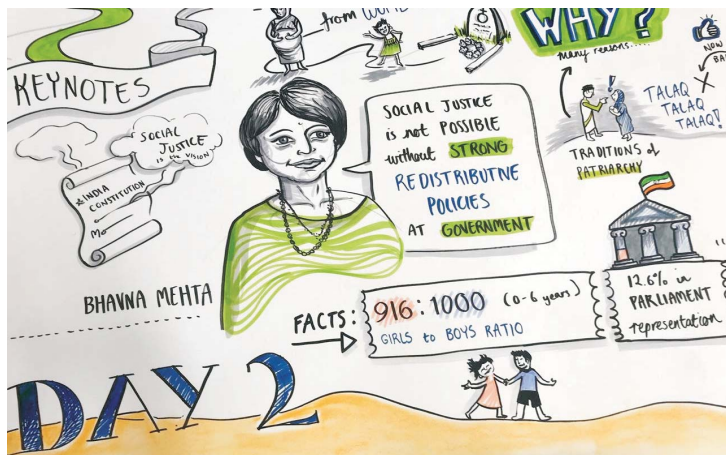 from WOMB
WHY?
many reasons....
NOW
KEYNOTES
SOCIAL
JUSTICE
is the VISION
INDIA
CONSTITUTION
SOCIAL JUSTICE
is not POSSIBLE
without STRONG
REDISTRIBUTNE
POLICIES
AT GOVERNMENT
TALAQ
TALAQ
TALAQ!
!
TRADITIONS of
PATRIARCHY
BHAVNA MEHTA
FACTS:
916:1000 (0-6 years)
GIRLS to BOYS RATIO
12.6% in
PARLIAMENT
representation
DAY 2